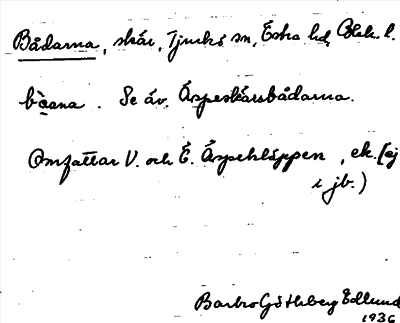 Bådarna, skär, Tjurkö sn, Östra hd, Blek. l.
bå̀ana. Se äv. Äspeskärsbådarna.
Omfattar V. och Ö. Äspeklåppen, ek. (ej
i jb.)
Barbro Götlberg Edlund
1936